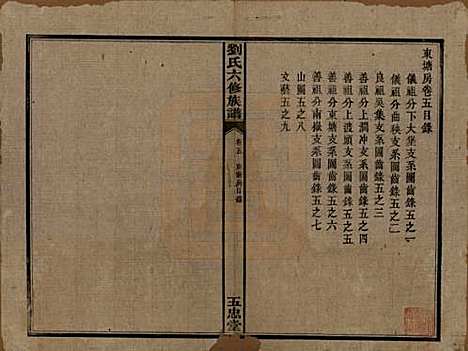 東塘房卷五目錄
儀祖分下大堡支系圖齒錄五之一
儀祖分曲秧支系圖齒錄五之二
良祖吳集支系圖齒錄五之三
善祖分上澗冲支系圖齒錄五之四
善祖分上渡頭支系圖齒錄五之五
善祖分東塘支系圖齒錄五之六
善祖分南嶽支系圖齒錄五之七
山圖五之八
文藝五之九
劉氏六修族譜
卷五 東塘房目錄
五忠堂